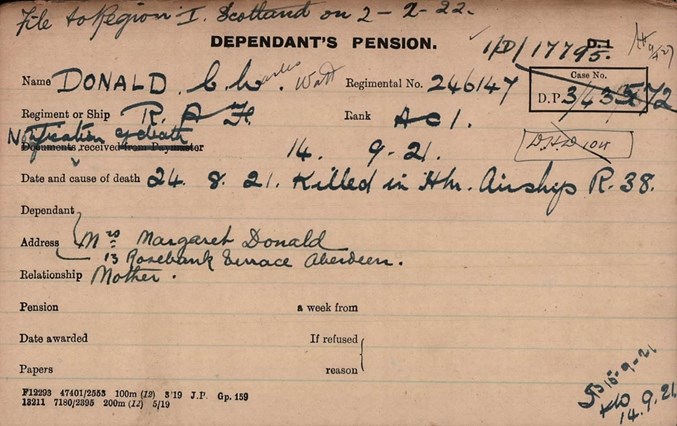 File to Region I. Scotland on 2-2-22.
DEPENDANT'S PENSION.
1/D/17795.
Name DONALD. C. W. Charles Watt Regimental No. 246147 Case No. D.P. 3/43572
Regiment or Ship R. A. F. Rank AC 1.
Notification of death
Documents received from Paymaster 14. 9-21.
Date and cause of death 24. 8. 21. Killed in Hm. Airship R. 38.
Dependant
Address Mrs Margaret Donald
13 Rosebank Terrace Aberdeen.
Relationship Mother.
Pension a week from
Date awarded If refused
Papers reason
F12293 47401/2553 100m (12) 3/19 J.P. Gp. 159
13211 7180/2395 200m (12) 5/19
15-9-21
14.9.21